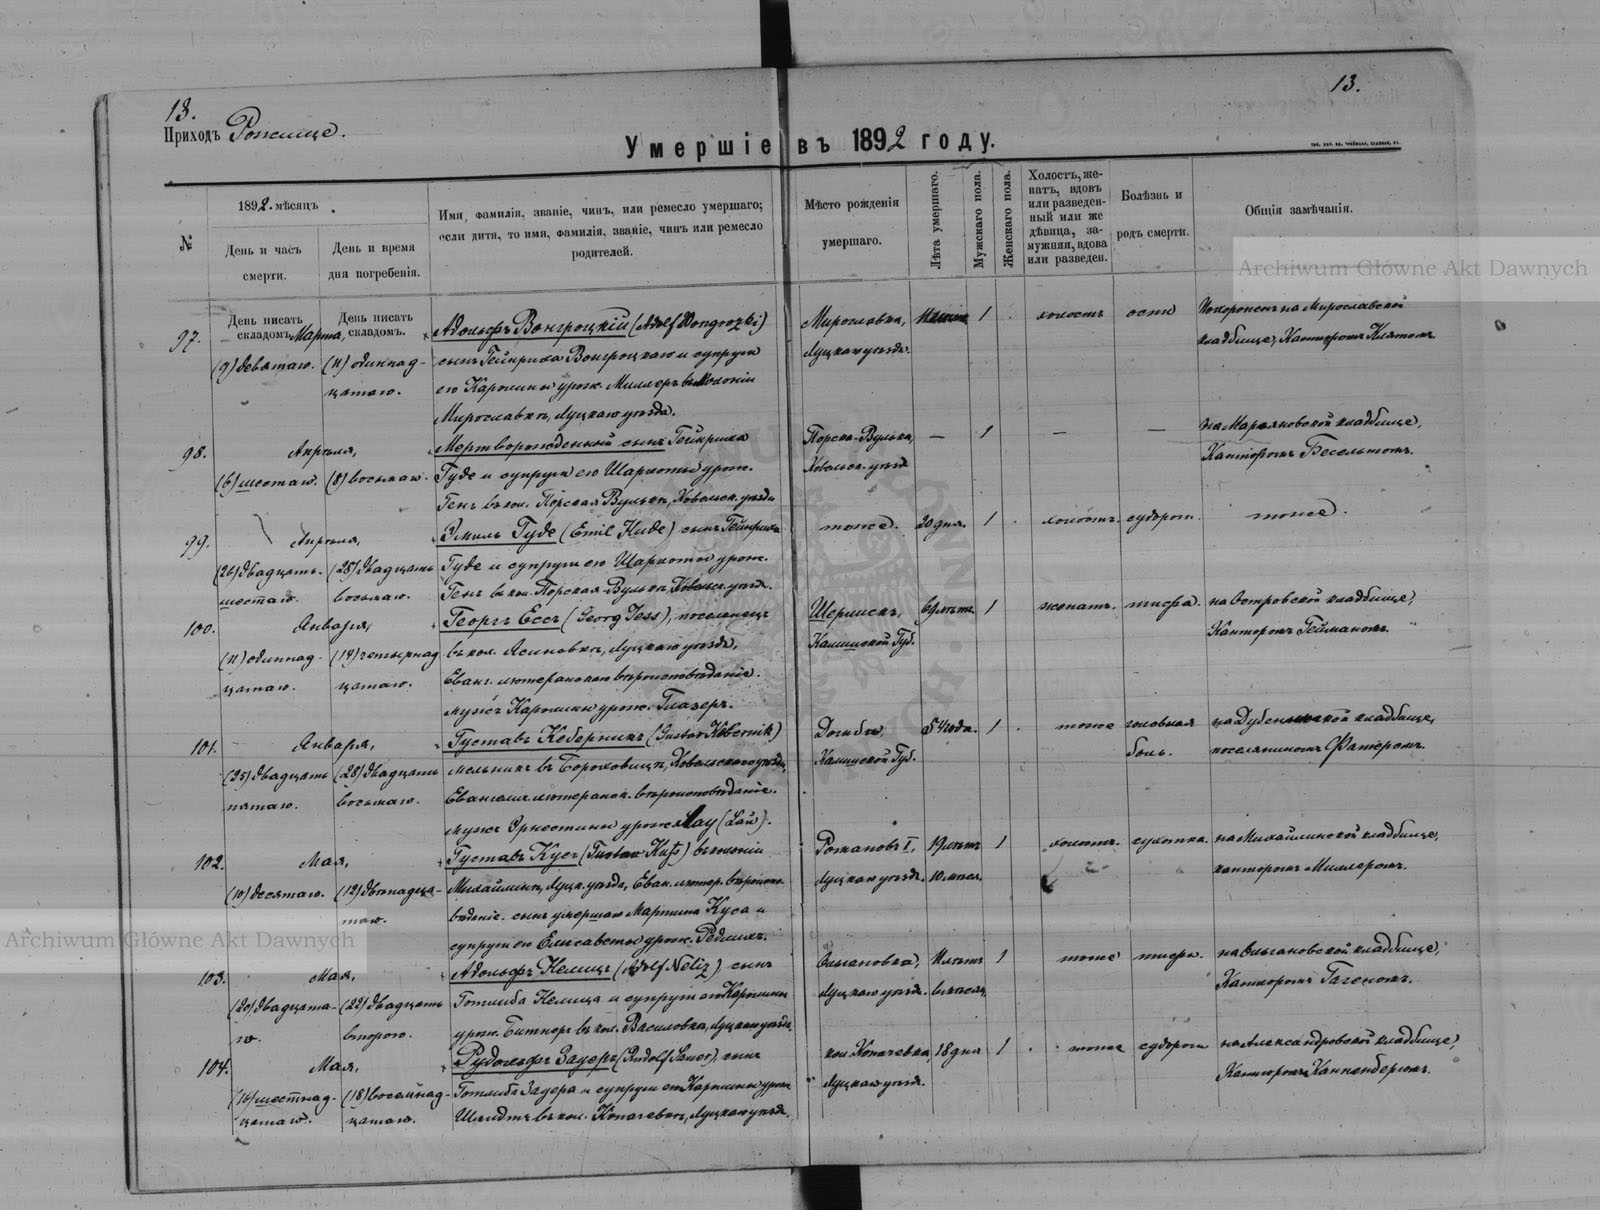 13.
13.
Приходъ Рожище.
Умершіе въ 1892 году.
№
1892 мѣсяцъ
День и часъ смерти.
День и время дня погребенія.
Имя, фамилія, званіе, чинъ, или ремесло умершаго;
если дитя, то имя, фамилія, званіе, чинъ или ремесло
родителей.
Мѣсто рожденія
умершаго.
Лѣта умершаго.
Мужскаго пола.
Женскаго пола.
Холостъ, же-
натъ, вдовъ
или разведен-
ный или же
дѣвица, за-
мужняя, вдова
или разведен.
Болѣзнь и
родъ смерти.
Общія замѣчанія.
День писать
складомъ.
День писать
складомъ.
97.
Марта,
(9) девятаго. (11) одиннад-
цатаго.
Адольфъ Вонгроцкій (Adolf Wongrozki)
сынъ Гейнриха Вонгроцкаго и супруги
его Каролины урож. Миллеръ въ колоніи
Мирославкѣ, Луцкаго уѣзда.
Мирославка,
Луцкаго уѣзда.
1
холостъ
оспы
Похороненъ на Мирославской
кладбищѣ, Канторомъ
98.
Апрѣля,
(6) шестаго. (8) восьмаго.
Мертворожденный сынъ Гейнриха
Гуде и супруги его Шарлоты урож.
Генъ въ кол. Порская Вулька, Ковельск. уѣзда
Порска-Вулька,
Ковельск. уѣзда
—
1
—
—
на Марьяновской кладбищѣ,
Канторомъ Бесельтомъ.
99.
Апрѣля,
(26) двадцать-
шестаго.
(28) двадцать
восьмаго.
Эмиль Гуде (Emil Hude) сынъ Гейнриха
Гуде и супруги его Шарлоты урож.
Генъ въ кол. Порская Вулька, Ковельск. уѣзда.
тоже.
20 дня.
1
холостъ.
судорог.
тоже.
100.
Января,
(11) одиннад-
цатаго.
(14) четырнад
цатаго.
Георгъ Ессъ (Georg Jess), поселенецъ
въ кол. Ясиновкѣ, Луцкаго уѣзда,
Еванг. лютеранскаго вѣроисповѣданіе.
мужъ Каролины урож. Глазеръ.
Калишской Губ.
1
женатъ.
тифа.
на Островской кладбищѣ,
Канторомъ Гейманомъ.
101.
Января,
(25) двадцать
пятаго.
(28) двадцать
восьмаго.
Густавъ Кеберникъ (Gustav Köbernik)
мельникъ въ Бороховицѣ, Ковельскаго уѣзда,
Евангелич. лютеранск. вѣроисповѣданіе.
мужъ Эрнестины урож. Лау (Lau).
Калишской Губ.
54 года.
1
тоже
головная
боль.
кладбищѣ,
поселяниномъ Фатеромъ.
102.
Мая,
(10) десятаго.
(12) двѣнадца-
таго.
Густавъ Кусъ (Gustav Kuss) въ колоніи
Михайлинѣ, Луцк. уѣзда, Еван. лютер. вѣроиспо-
вѣданіе. сынъ умершаго Мартина Куса и
супруги его Елисаветы урож. Редлихъ.
Романовъ I,
Луцкаго уѣзда.
19 лѣтъ
10 мѣся.
1
холостъ.
сухотка.
на Михайлинской кладбищѣ,
канторомъ Миллеромъ.
103.
Мая,
(20) двадцата-
го.
(22) двадцать
втораго.
Адольфъ Нелицъ (Adolf Neliz) сынъ
Готлиба Нелица и супруги его Каролины
урож. Битнеръ въ кол. Василовкѣ, Луцкаго уѣзда.
Ольгановка,
Луцкаго уѣзда.
1
тоже
тифа.
на Ольгановской кладбищѣ,
Канторомъ
104.
Мая,
(16) шестнад-
цатаго.
(18) восемнад-
цатаго.
Рудольфъ Зауеръ (Rudolf Sauer), сынъ
Готлиба Зауера и супруги его Каролины урож.
Шмидтъ въ кол. Копачевкѣ, Луцкаго уѣзда.
кол. Копачевка,
Луцкаго уѣзда.
18 дня
1
тоже
судороги
на Александровской кладбищѣ,
Канторомъ Канненбергомъ.
Archiwum Główne Akt Dawnych
Archiwum Główne Akt Dawnych